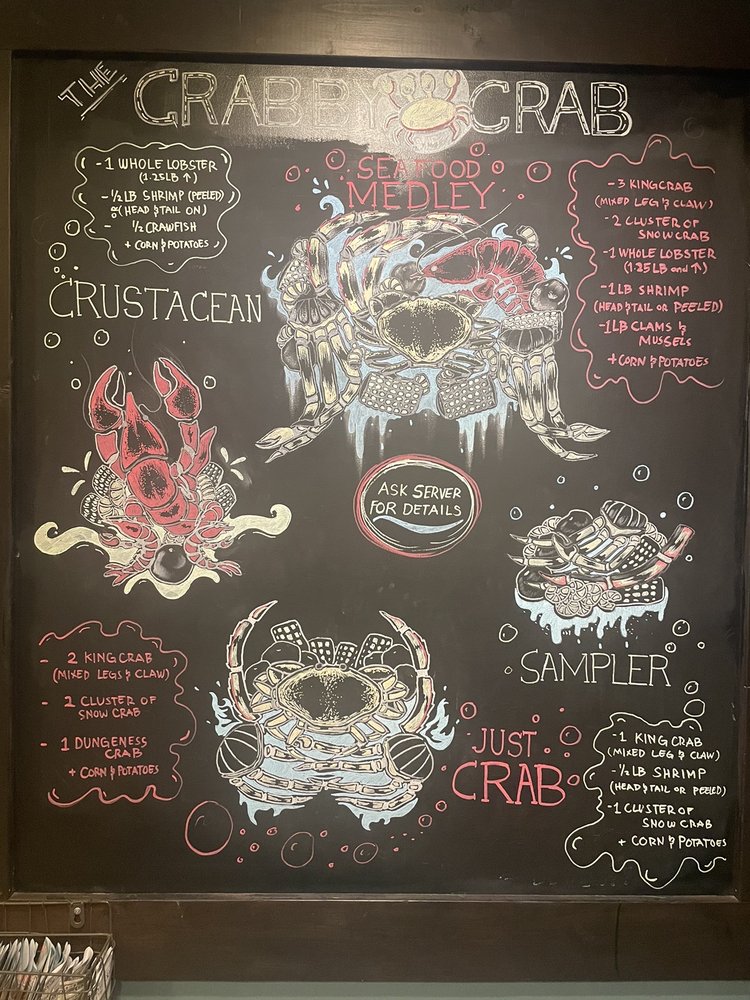 THE
CRABBY CRAB
- 1 WHOLE LOBSTER
(1.25LB ↑)
- ½ LB SHRIMP (PEELED)
or (HEAD & TAIL ON)
- ½ CRAWFISH
+ CORN & POTATOES
CRUSTACEAN
SEAFOOD
MEDLEY
- 3 KING CRAB
(MIXED LEG & CLAW)
- 2 CLUSTER OF
SNOW CRAB
- 1 WHOLE LOBSTER
(1.25LB and ↑)
- 1 LB SHRIMP
(HEAD & TAIL OR PEELED)
- 1 LB CLAMS &
MUSSELS
+ CORN & POTATOES
ASK SERVER
FOR DETAILS
SAMPLER
- 2 KING CRAB
(MIXED LEGS & CLAW)
- 2 CLUSTER OF
SNOW CRAB
- 1 DUNGENESS
CRAB
+ CORN & POTATOES
JUST
CRAB
- 1 KING CRAB
(MIXED LEG & CLAW)
- ½ LB SHRIMP
(HEAD & TAIL OR PEELED)
- 1 CLUSTER OF
SNOW CRAB
+ CORN & POTATOES